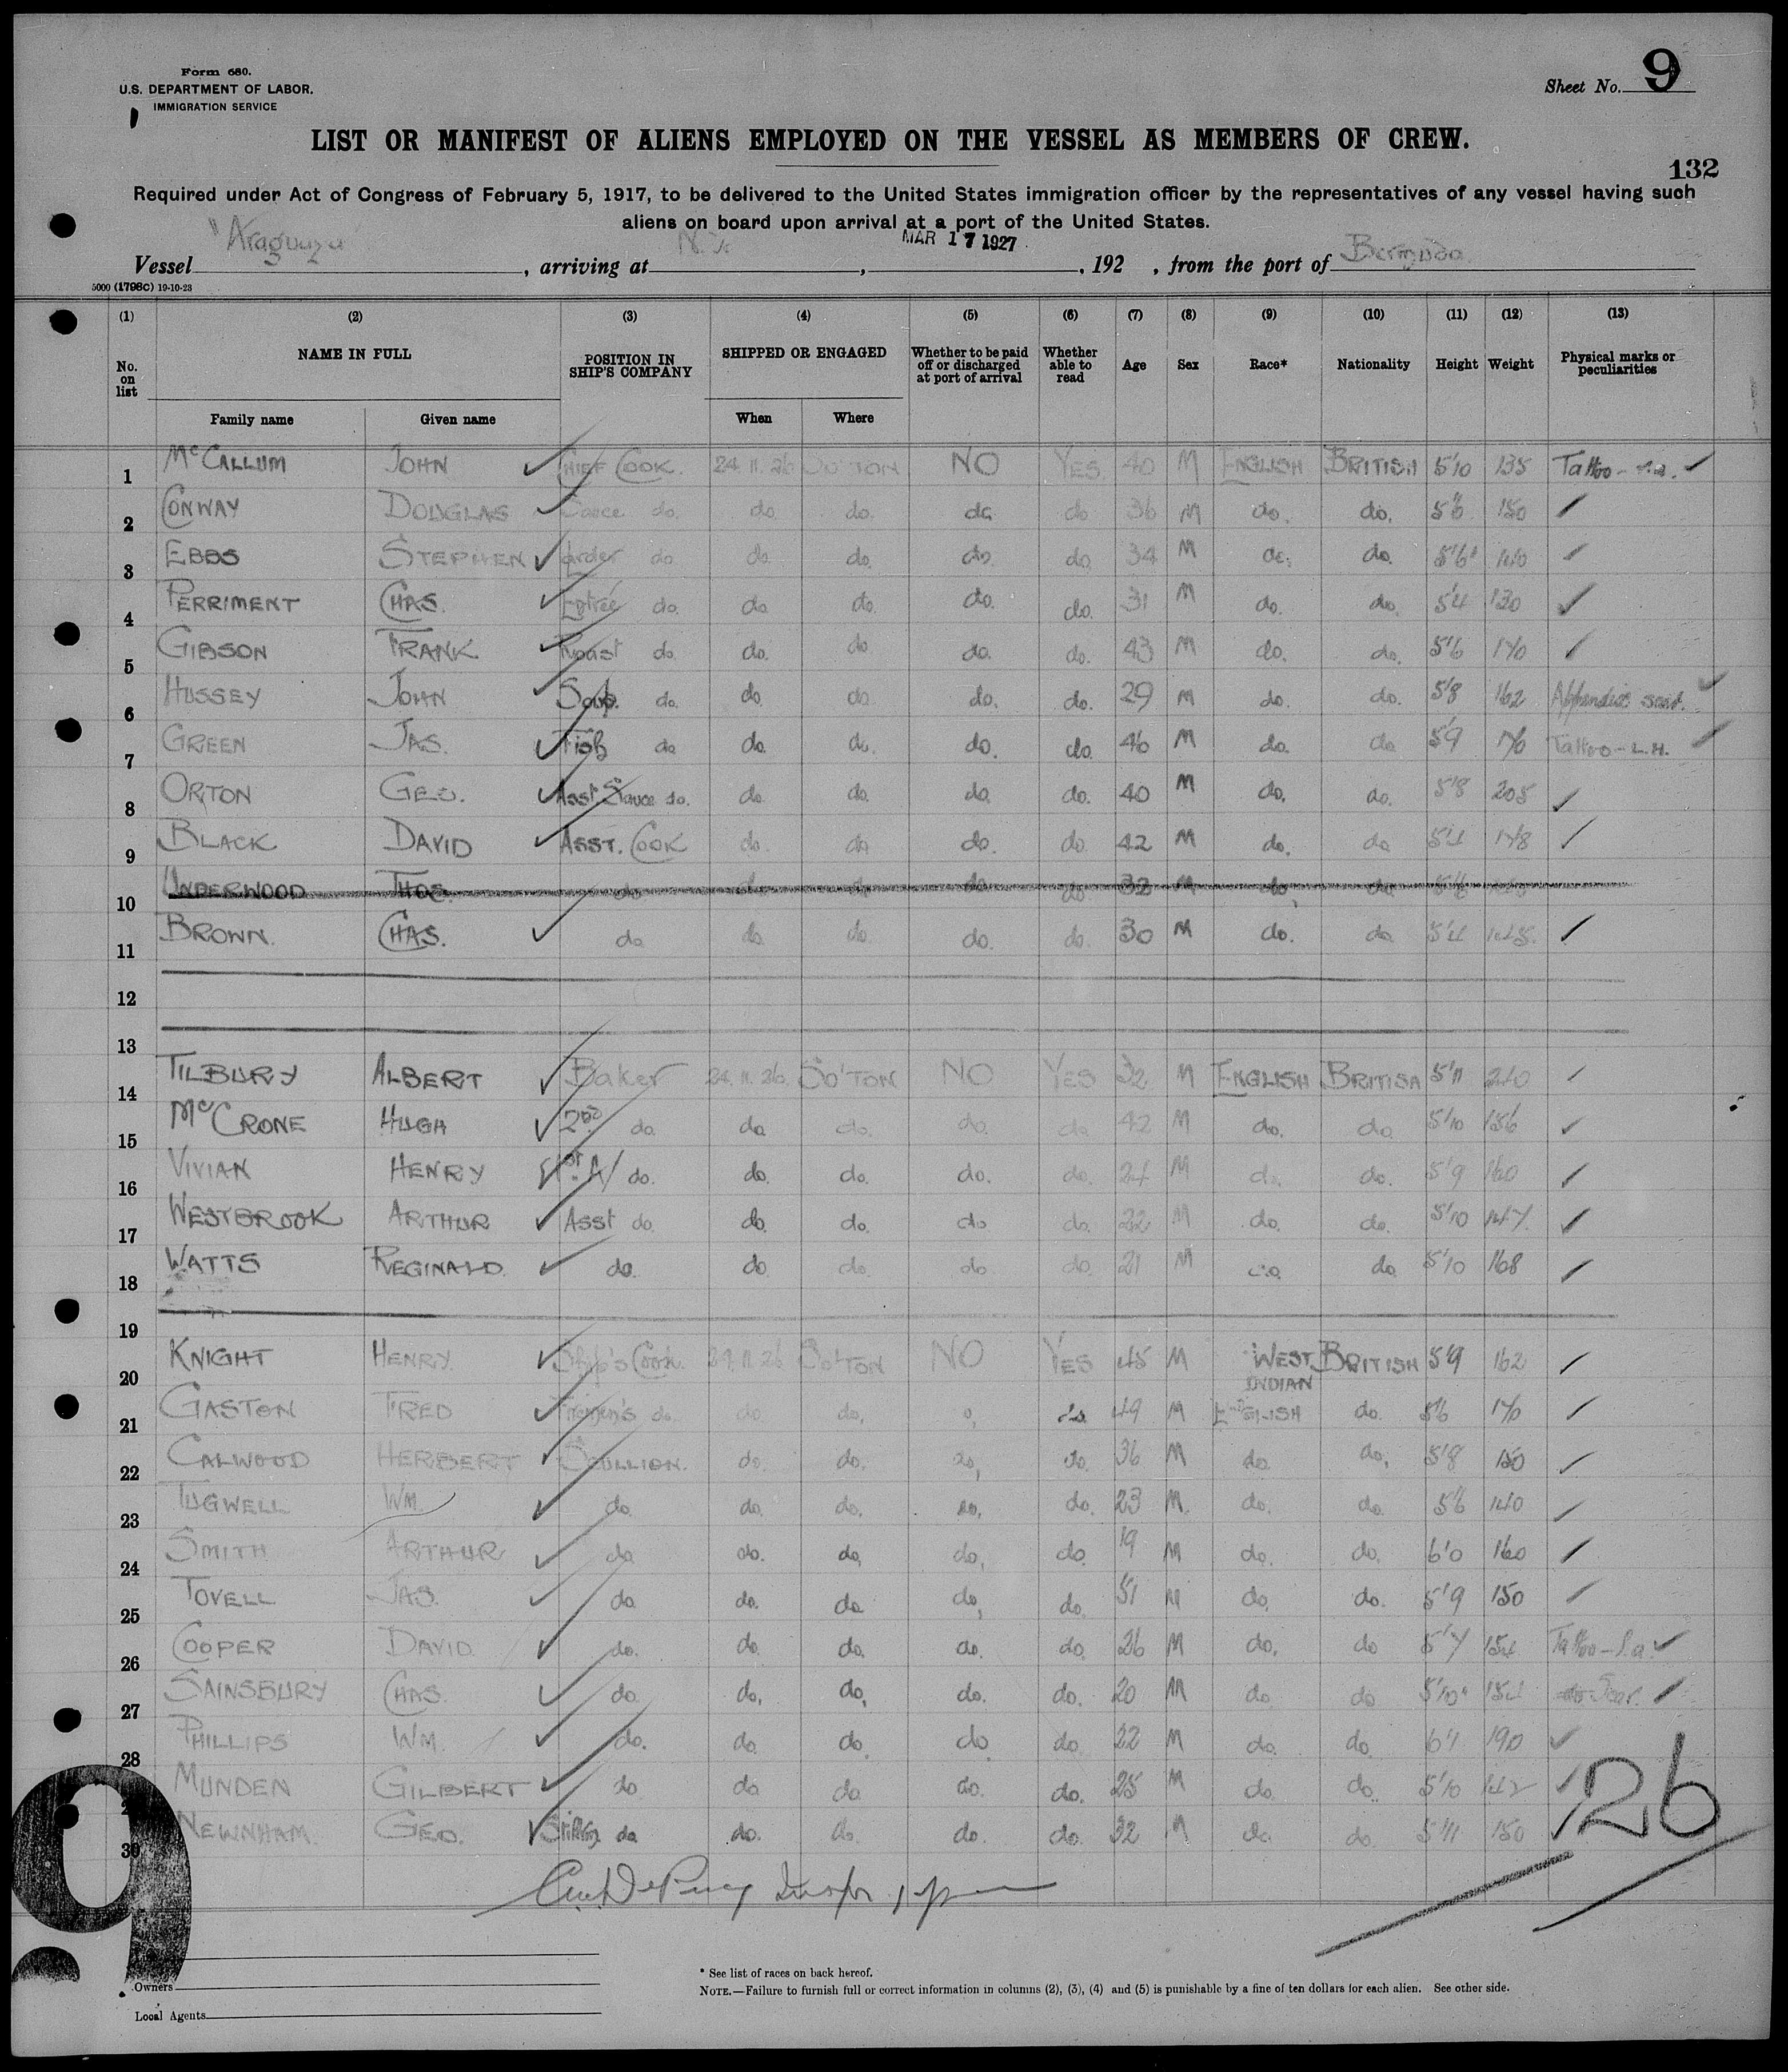 Form 680.
U.S. DEPARTMENT OF LABOR.
IMMIGRATION SERVICE
Sheet No. 9
LIST OR MANIFEST OF ALIENS EMPLOYED ON THE VESSEL AS MEMBERS OF CREW.
132
Required under Act of Congress of February 5, 1917, to be delivered to the United States immigration officer by the representatives of any vessel having such
aliens on board upon arrival at a port of the United States.
Vessel "Araguaya", arriving at N.Y., MAR 17 1927, 192 , from the port of Bermuda
5000 (1798C) 19-10-23
(1) (2) (3) (4) (5) (6) (7) (8) (9) (10) (11) (12) (13)
No. on list NAME IN FULL POSITION IN SHIP'S COMPANY SHIPPED OR ENGAGED Whether to be paid off or discharged at port of arrival Whether able to read Age Sex Race* Nationality Height Weight Physical marks or peculiarities
Family name Given name When Where
1 McCALLUM JOHN CHIEF COOK. 24.11.26 SO'TON NO YES 40 M ENGLISH BRITISH 5'10 135 Tattoo -
2 CONWAY DOUGLAS Sauce do. do. do. do do 36 M do. do. 5'6 150
3 EBBS STEPHEN Larder do do. do. do. do. 34 M do. do. 5'6" 140
4 PERRIMENT CHAS. Entrée do. do. do. do. do. 31 M do. do. 5'4 130
5 GIBSON FRANK Roast do. do. do do. do. 43 M do. do. 5'6 170
6 HUSSEY JOHN Soup. do. do. do. do. do. 29 M do. do. 5'8 162 Appendix scar.
7 GREEN JAS. Fish do do. do. do. do. 46 M do. do 5'9 170 Tattoo - L.H.
8 ORTON GEO. Asst Sauce do. do. do. do. do. 40 M do. do. 5'8 205
9 BLACK DAVID ASST. COOK do. do do. do. 42 M do. do 5'4 178
10 UNDERWOOD THOS. do do do do do. 32 M do. do 5'6
11 BROWN. CHAS. do do. do. do. do. 30 M do. do 5'4 145.
12
13
14 TILBURY ALBERT Baker 24.11.26. SO'TON NO YES 32 M ENGLISH BRITISH 5'11 210
15 McCRONE HUGH 2nd do. do do. do. do 42 M do. do 5'10 156
16 VIVIAN HENRY do. do. do. do. do. 24 M do. do. 5'9 160
17 WESTBROOK ARTHUR Asst do. do. do. do do. 22 M do. do. 5'10 147.
18 WATTS REGINALD. do. do do. do do. 21 M do. do 5'10 168
19
20 KNIGHT HENRY. Ship's Cook. 24.11.26 SO'TON NO YES 45 M WEST INDIAN BRITISH 5'9 162
21 GASTON FRED Firemen's do. do. do. do. 49 M ENGLISH do. 5'6 170
22 CALWOOD HERBERT SCULLION. do. do. do. do. 36 M do do. 5'8 150
23 TUGWELL WM. do. do. do. do. do. 23 M. do. do. 5'6 140
24 SMITH ARTHUR do do. do. do. do. 19 M do. do. 6'0 160
25 TOVELL JAS. do do. do do. do. 51 M do. do. 5'9 150
26 COOPER DAVID. do. do. do. do. do. 26 M do. do 5'7 154 Tattoo -
27 SAINSBURY CHAS. do. do. do. do. do. 20 M do do 5'10" 154 Scar.
28 PHILLIPS WM. do. do. do. do. do. 22 M do. do. 6'1 190
MUNDEN GILBERT do do do. do. do. 25 M do. do. 5'10 142
30 NEWNHAM. GEO. do do. do. do. do. 22 M do. do. 5'11 150
26
9
Owners
Local Agents
* See list of races on back hereof.
NOTE.—Failure to furnish full or correct information in columns (2), (3), (4) and (5) is punishable by a fine of ten dollars for each alien. See other side.